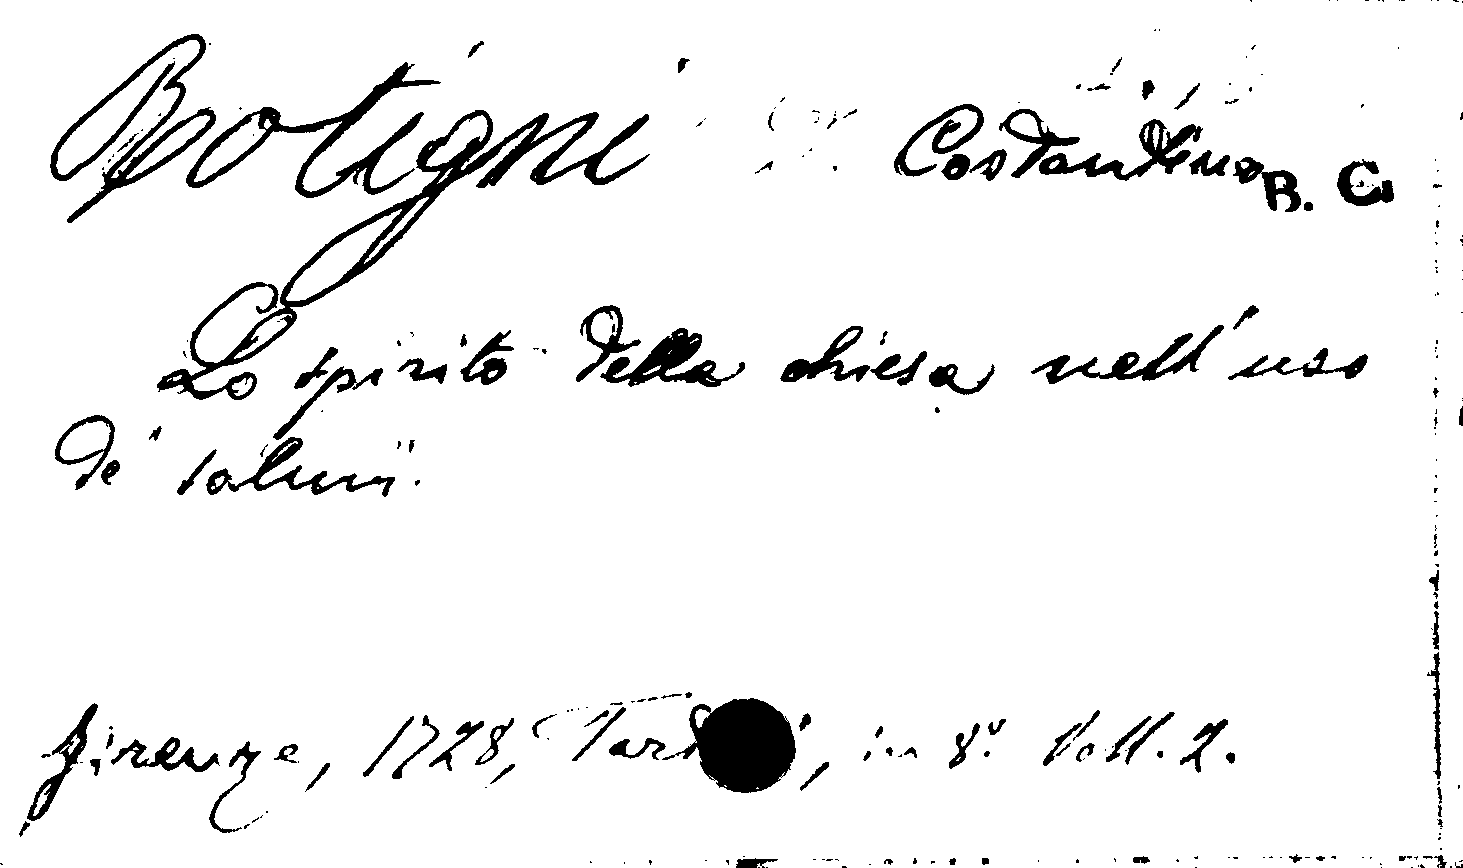 Botigni Costantino B. C.
Lo spirito della chiesa nell'uso
de' salmi.
Firenze, 1728, in 8º. Voll. 2.